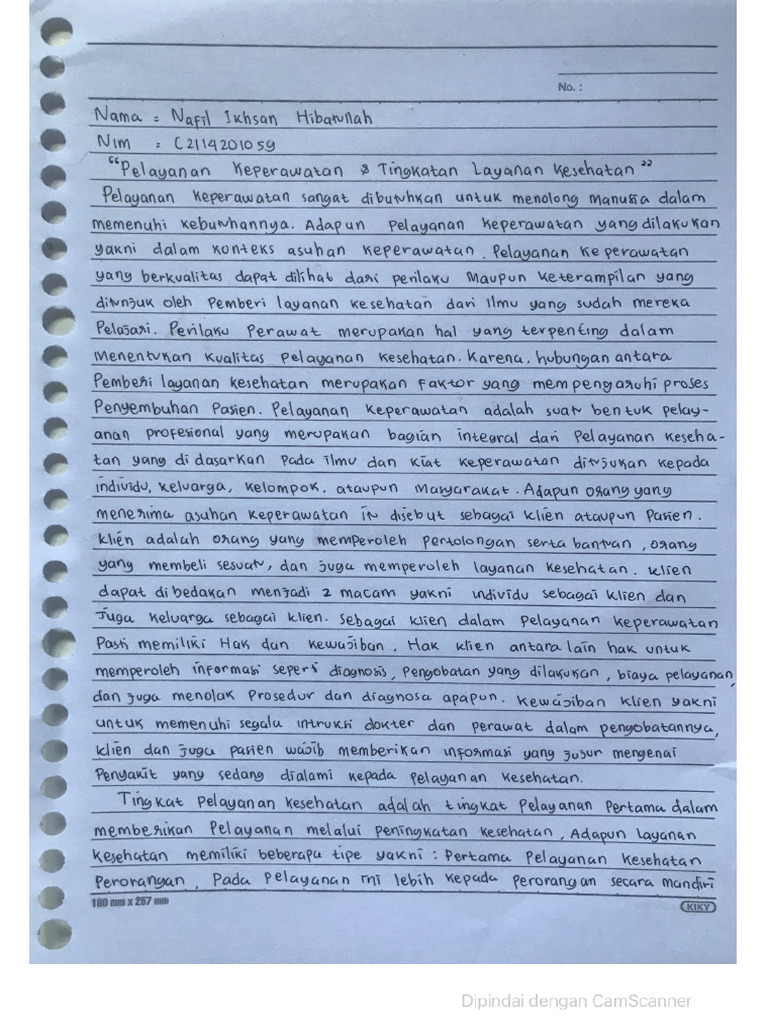 No. :
Nama = Nafil Ikhsan Hibatullah
Nim = C2114201059
"Pelayanan Keperawatan & Tingkatan Layanan Kesehatan"
Pelayanan Keperawatan sangat dibutuhkan untuk menolong Manusia dalam
memenuhi kebutuhannya. Adapun Pelayanan Keperawatan yang dilakukan
yakni dalam konteks asuhan keperawatan. Pelayanan Keperawatan
yang berkualitas dapat dilihat dari perilaku Maupun keterampilan yang
ditunjuk oleh Pemberi layanan kesehatan dari Ilmu yang sudah mereka
Pelajari. Perilaku Perawat merupakan hal yang terpenting dalam
Menentukan Kualitas Pelayanan Kesehatan. Karena, hubungan antara
Pemberi layanan kesehatan merupakan Faktor yang mempengaruhi proses
Penyembuhan Pasien. Pelayanan Keperawatan adalah suatu bentuk pelay-
anan profesional yang merupakan bagian integral dari Pelayanan keseha-
tan yang di dasarkan pada ilmu dan kiat keperawatan ditujukan kepada
individu, keluarga, kelompok, ataupun Masyarakat. Adapun orang yang
menerima asuhan keperawatan itu disebut sebagai klien ataupun Pasien.
Klien adalah orang yang memperoleh pertolongan serta bantuan, orang
yang membeli sesuatu, dan juga memperoleh layanan kesehatan. Klien
dapat dibedakan menjadi 2 macam yakni individu sebagai klien dan
Juga keluarga sebagai klien. Sebagai klien dalam Pelayanan Keperawatan
Pasti memiliki Hak dan Kewajiban. Hak klien antara lain hak untuk
memperoleh informasi seperti diagnosis, pengobatan yang dilakukan, biaya pelayanan,
dan juga menolak Prosedur dan diagnosa apapun. Kewajiban klien yakni
untuk memenuhi segala intruksi dokter dan perawat dalam pengobatannya,
klien dan juga pasien wajib memberikan informasi yang jujur mengenai
Penyakit yang sedang dialami kepada pelayanan kesehatan.
Tingkat Pelayanan Kesehatan adalah tingkat Pelayanan Pertama dalam
memberikan Pelayanan melalui peningkatan kesehatan, Adapun Layanan
Kesehatan memiliki beberapa tipe yakni : Pertama Pelayanan Kesehatan
Perorangan, Pada Pelayanan ini lebih kepada perorangan secara mandiri
180 mm x 257 mm
KIKY
Dipindai dengan CamScanner